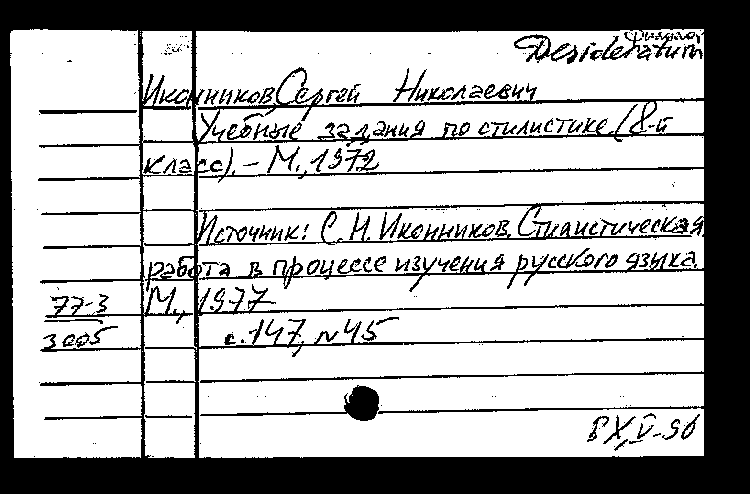 Филолог
Desideratum
Иконников, Сергей Николаевич
Учебные задания по стилистике (8-й
класс). – М., 1972
Источник: С. Н. Иконников. Стилистическая
работа в процессе изучения русского языка.
77-3 М., 1977
3005 с. 147, N45
ВХ, V-96